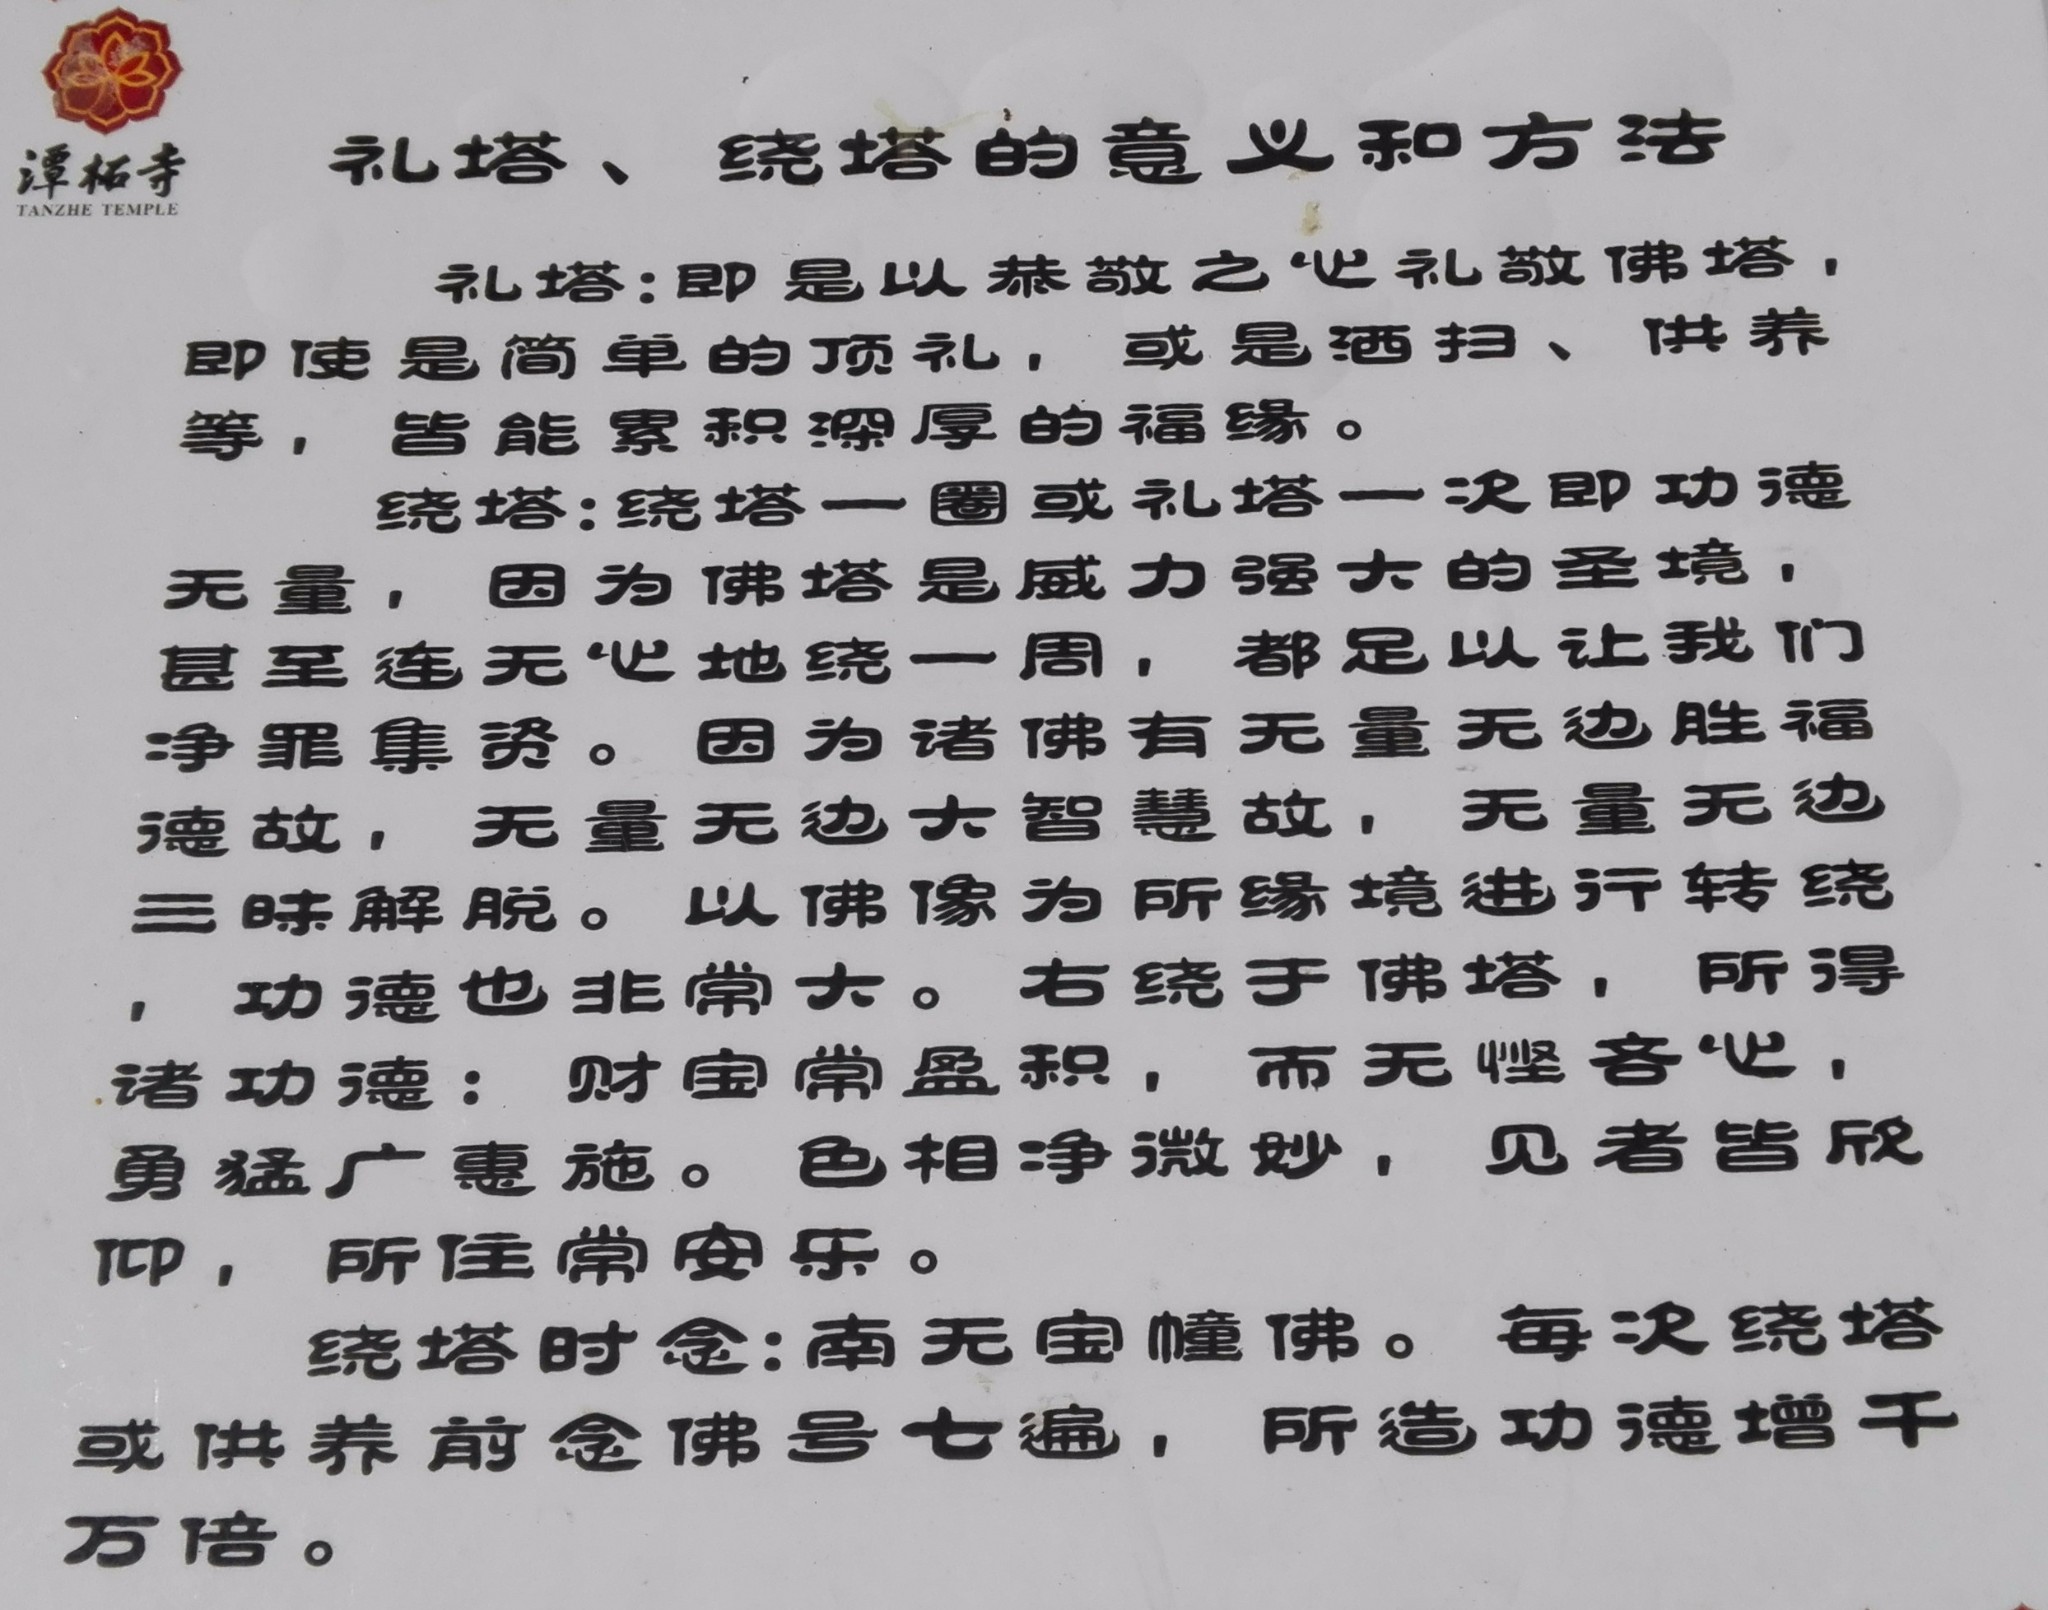 潭柘寺
TANZHE TEMPLE
礼塔、绕塔的意义和方法
礼塔:即是以恭敬之心礼敬佛塔，
即使是简单的顶礼，或是洒扫、供养
等，皆能累积深厚的福缘。
绕塔:绕塔一圈或礼塔一次即功德
无量，因为佛塔是威力强大的圣境，
甚至连无心地绕一周，都足以让我们
净罪集资。因为诸佛有无量无边胜福
德故，无量无边大智慧故，无量无边
三昧解脱。以佛像为所缘境进行转绕
，功德也非常大。右绕于佛塔，所得
诸功德：财宝常盈积，而无悭吝心，
勇猛广惠施。色相净微妙，见者皆欣
仰，所住常安乐。
绕塔时念:南无宝幢佛。每次绕塔
或供养前念佛号七遍，所造功德增千
万倍。